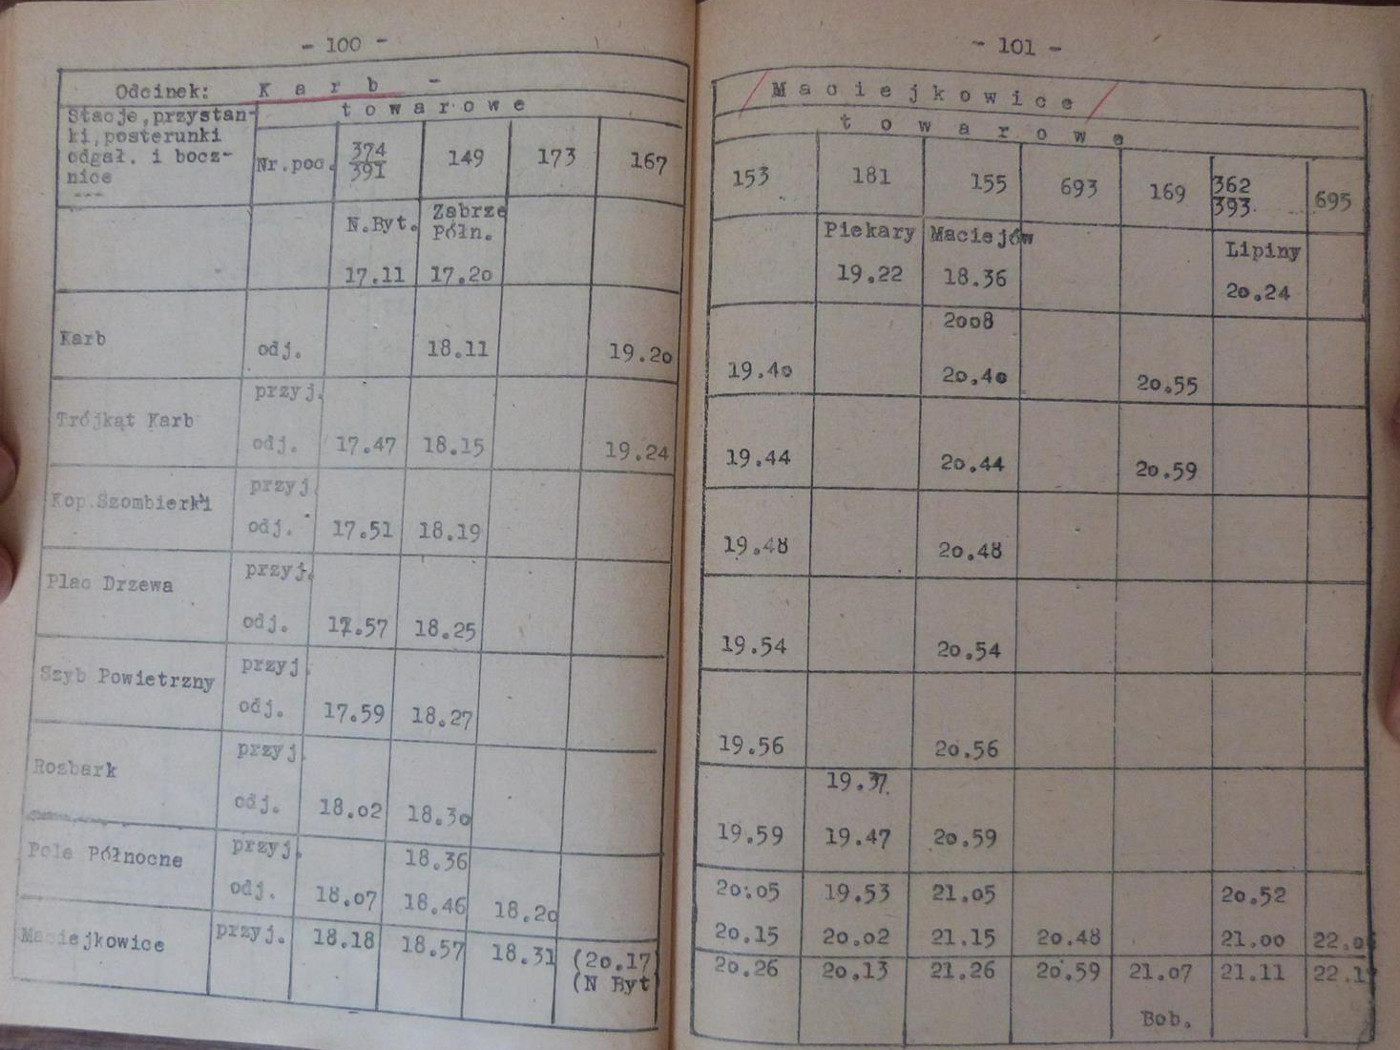 - 100 -
Odcinek: K a r b -
Stacje,przystan-
ki,posterunki
odgał. i bocz-
nice
---
t o w a r o w e
Nr.poc. 374/391 149 173 167
N.Byt. Zabrze
Półn.
17.11 17.20
Karb odj. 18.11 19.20
przyj.
Trójkąt Karb
odj. 17.47 18.15 19.24
przyj.
Kop.Szombierki
odj. 17.51 18.19
przyj.
Plac Drzewa
odj. 17.57 18.25
przyj.
Szyb Powietrzny
odj. 17.59 18.27
przyj.
Rozbark
odj. 18.02 18.30
przyj. 18.36
Pole Północne
odj. 18.07 18.46 18.20
Maciejkowice przyj. 18.18 18.57 18.31 (20.17)
(N Byt)
- 101 -
M a c i e j k o w i c e
t o w a r o w e
153 181 155 693 169 362/393 695
Piekary Maciejów Lipiny
19.22 18.36 20.24
2008
19.40 20.40 20.55
19.44 20.44 20.59
19.48 20.48
19.54 20.54
19.56 20.56
19.37
19.59 19.47 20.59
20.05 19.53 21.05 20.52
20.15 20.02 21.15 20.48 21.00
20.26 20.13 21.26 20.59 21.07 21.11
Bob.